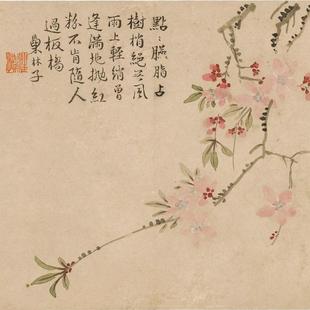 點〻臙脂占
樹梢絕芒風
雨上輕綃曾
逢滿地拋紅
粉不肯隨人
過板橋
棗林子